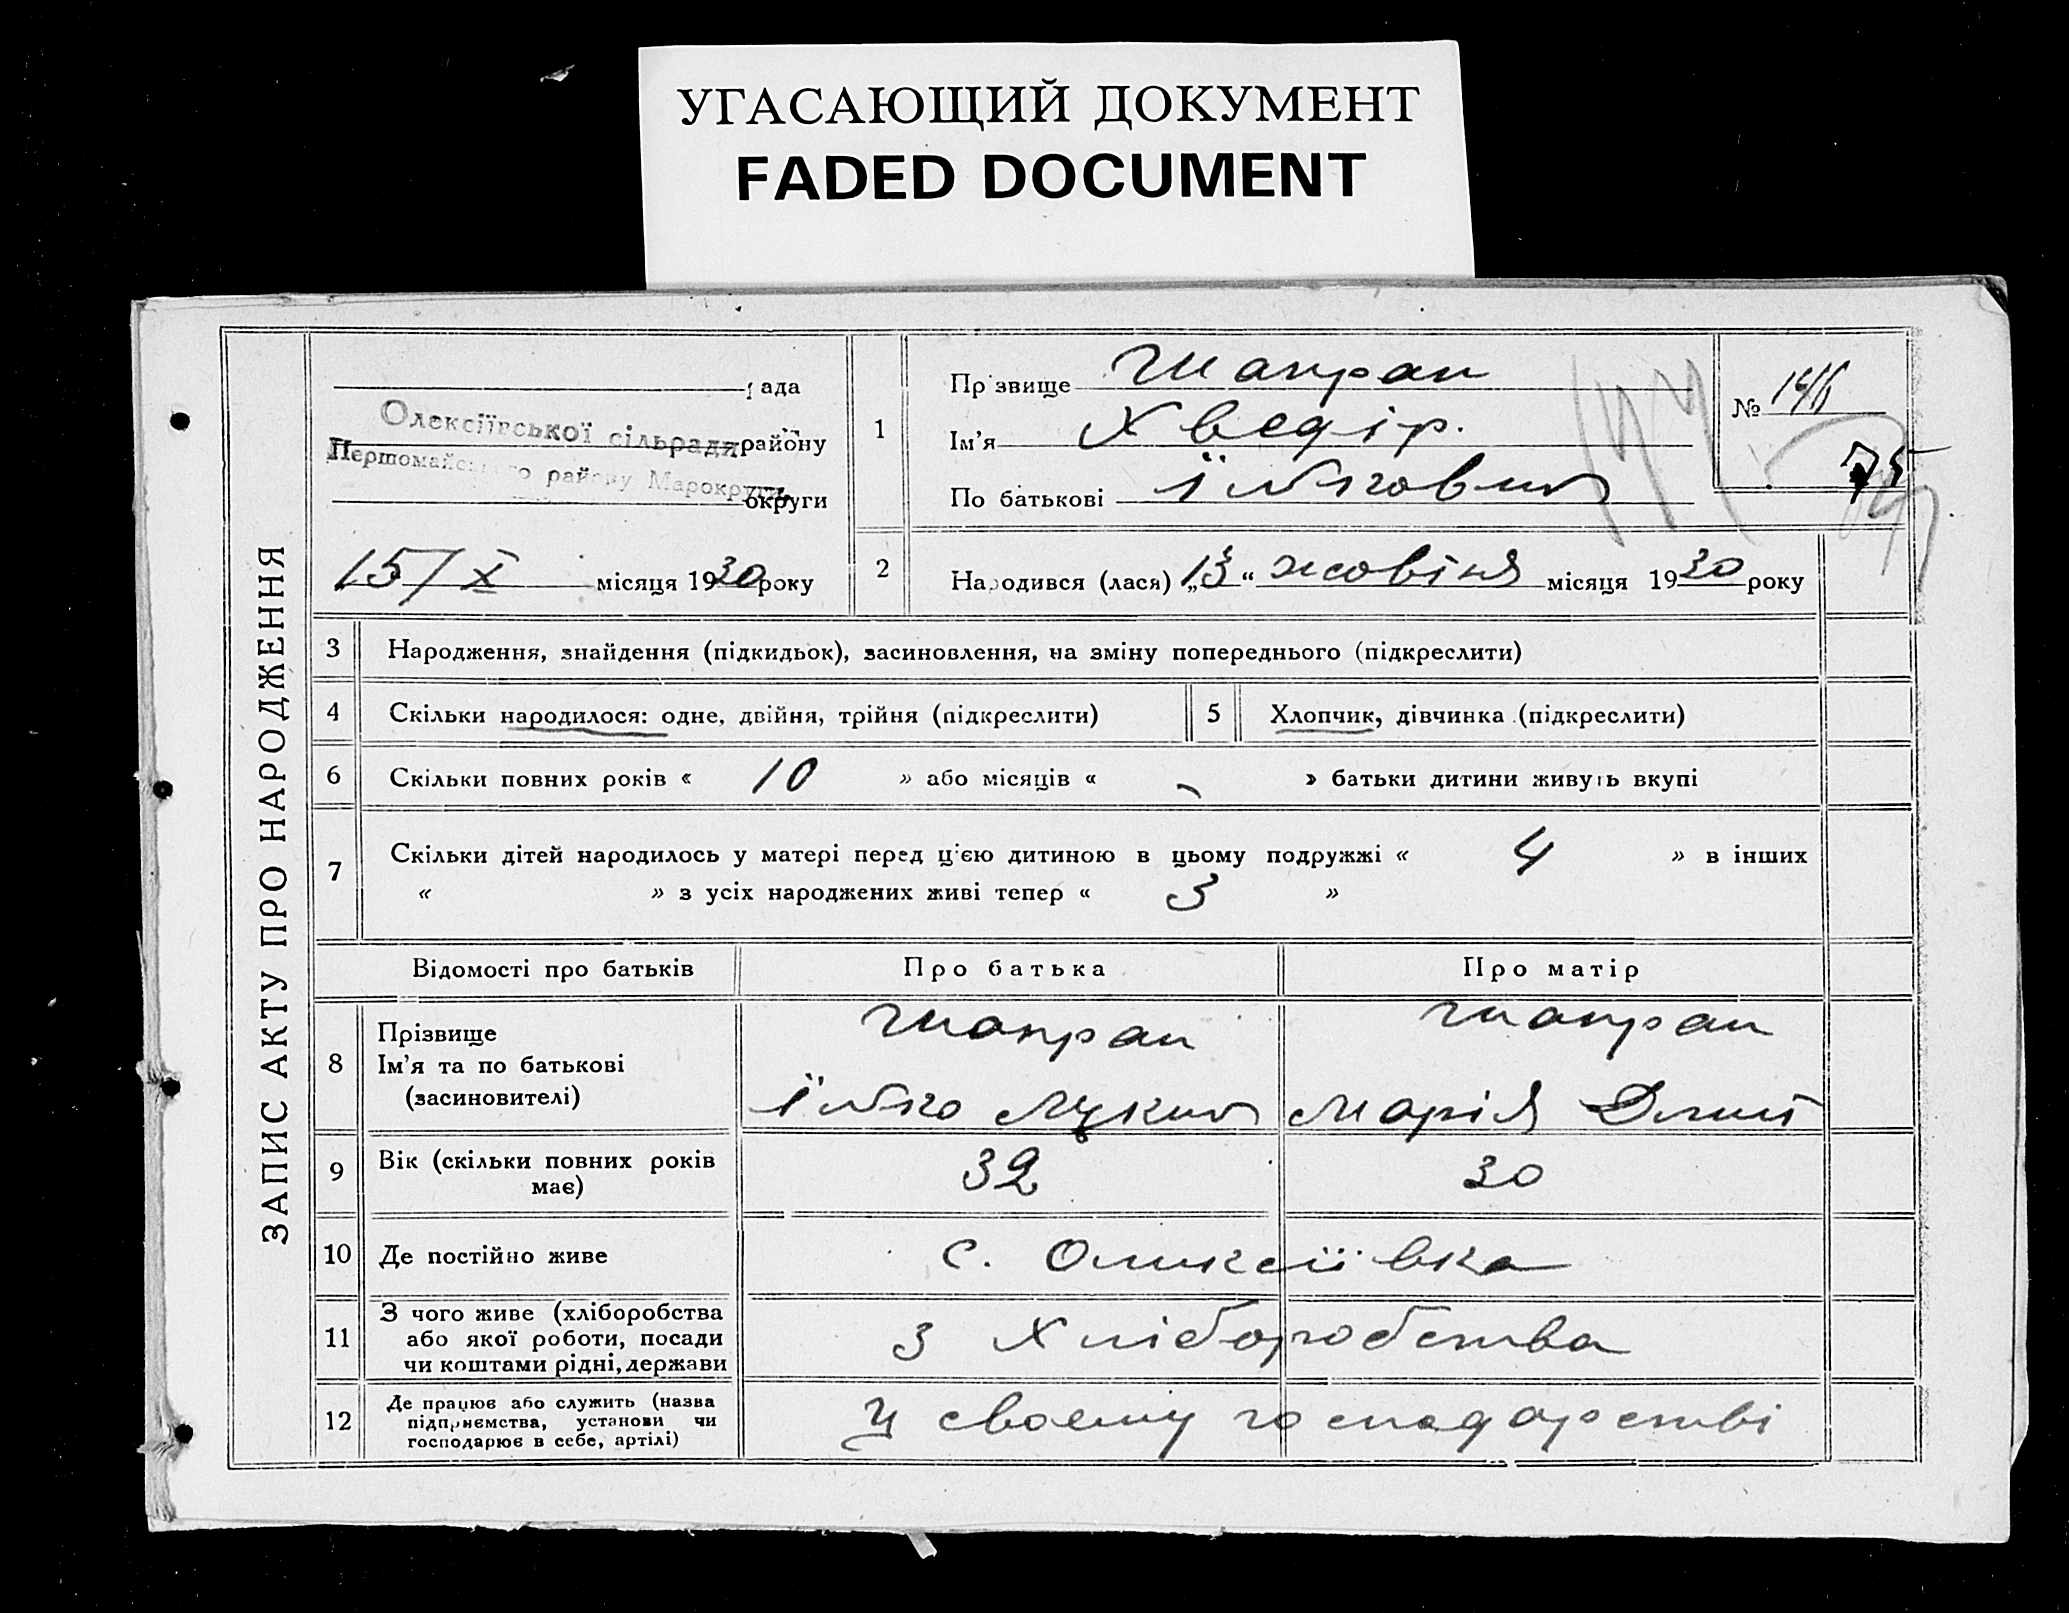 УГАСАЮЩИЙ ДОКУМЕНТ
FADED DOCUMENT
ЗАПИС АКТУ ПРО НАРОДЖЕННЯ
рада
Олексіївської сільради району
Першомайського району Марокруги округи
15/X місяця 1930 року
1
Прізвище Шапран
Ім'я Хведір.
По батькові Їлькович
№ 146
75
2
Народився (лася) „13“ жовтня місяця 1930 року
3 Народження, знайдення (підкидьок), засиновлення, на зміну попереднього (підкреслити)
4 Скільки народилося: одне, двійня, трійня (підкреслити) 5 Хлопчик, дівчинка (підкреслити)
6 Скільки повних років « 10 » або місяців « - » батьки дитини живуть вкупі
7 Скільки дітей народилось у матері перед цією дитиною в цьому подружжі « 4 » в інших
« » з усіх народжених живі тепер « 3 »
Відомості про батьків Про батька Про матір
8 Прізвище Шапран Шапран
Ім'я та по батькові
(засиновителі) Їлько Лукич Марія
9 Вік (скільки повних років має) 32 30
10 Де постійно живе с. Оликсіївка
11 З чого живе (хліборобства
або якої роботи, посади
чи коштами рідні, держави з Хліборобства
12 Де працює або служить (назва
підприємства, установи чи
господарює в себе, артілі) У своєму господарстві